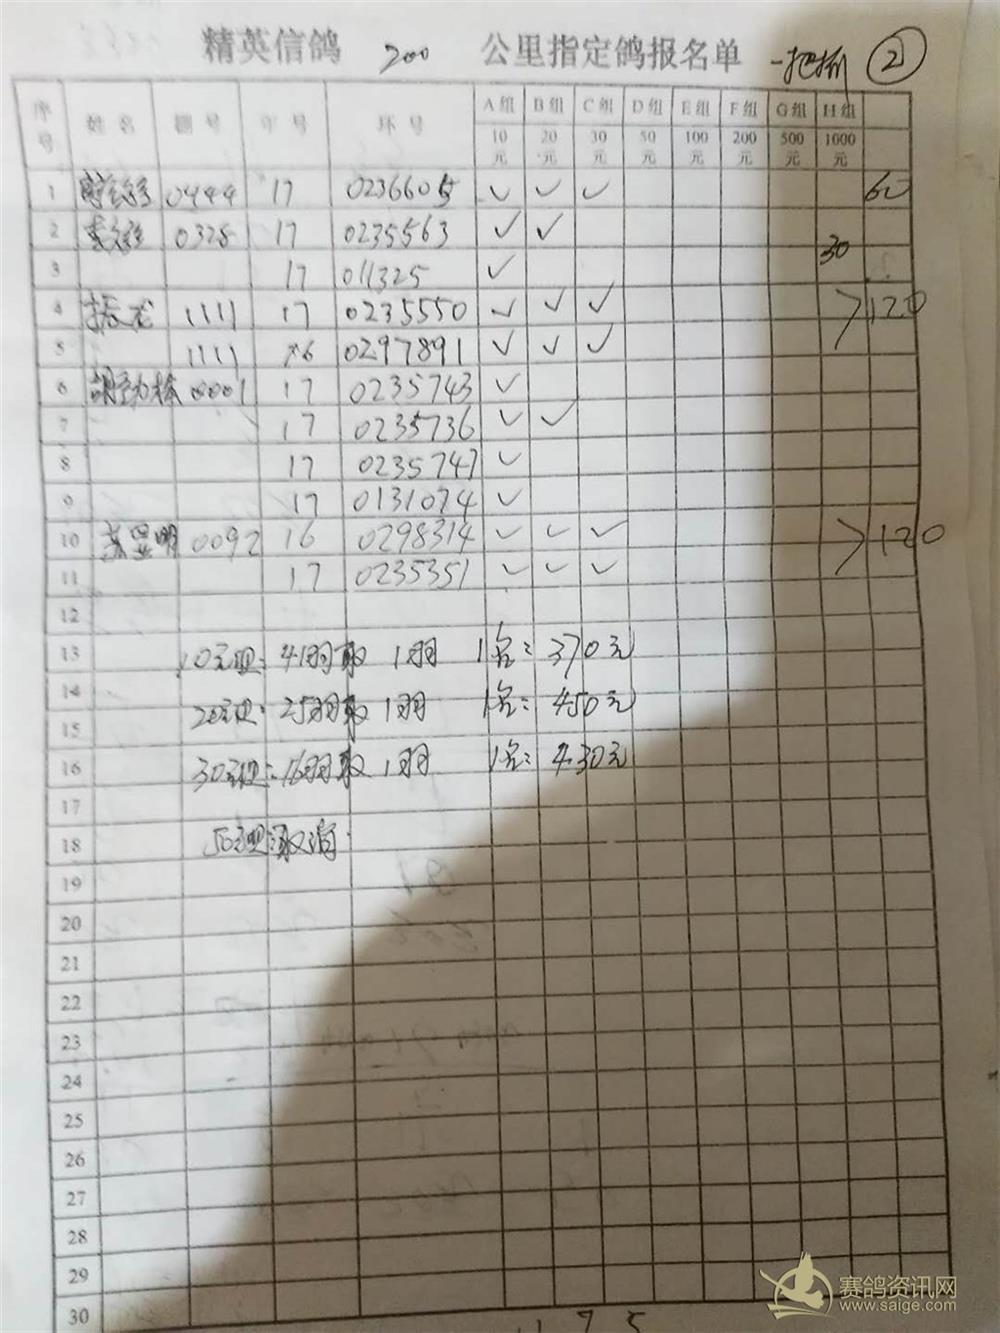 精英信鸽 200 公里指定鸽报名单 一把抓 ②
序号 姓名 棚号 年号 环号 A组 B组 C组 D组 E组 F组 G组 H组
10元 20元 30元 50元 100元 200元 500元 1000元
1 0444 17 0236605 ✓ ✓ ✓ 60
2 0328 17 0235563 ✓ ✓
30
3 17 011325 ✓
4 振龙 1111 17 0235550 ✓ ✓ ✓ >120
5 1111 16 0297891 ✓ ✓ ✓
6 0001 17 0235743 ✓
7 17 0235736 ✓ ✓
8 17 0235747 ✓
9 17 0131074 ✓
10 0092 16 0298314 ✓ ✓ ✓ >120
11 17 0235351 ✓ ✓ ✓
12
13 10元组: 41羽取 1羽 1名: 370元
14
15 20元组: 25羽取 1羽 1名: 450元
16 30元组: 16羽取 1羽 1名: 430元
17
18 50元组取消
19
20
21
22
23
24
25
26
27
28
29
30
赛鸽资讯网
www.saige.com